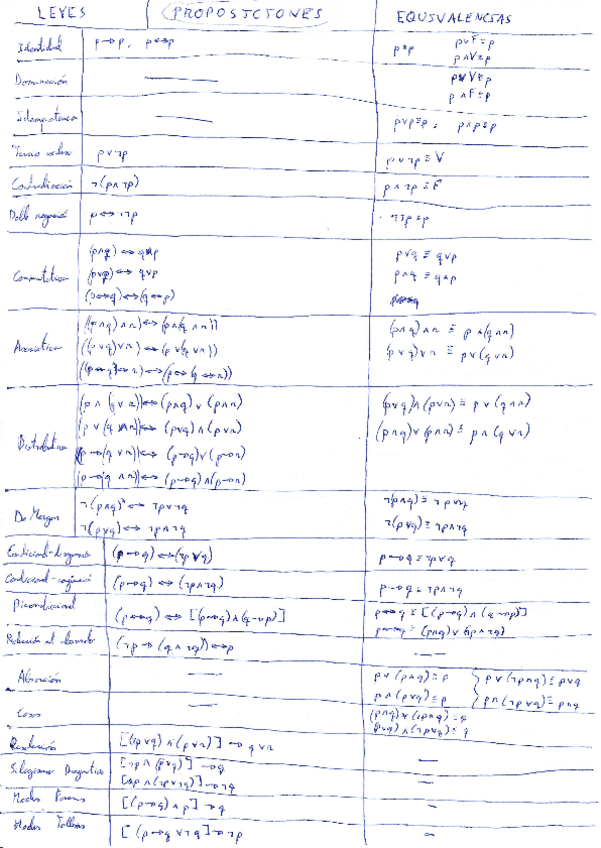 LEYES PROPOSICIONES EQUIVALENCIAS
Identidad p→p, p↔p p≡p p∨F≡p
p∧V≡p
Dominación — p∨V≡p
p∧F≡p
Idempotencia — p∨p≡p, p∧p≡p
Tercio p∨¬p p∨¬p≡V
Contradicción ¬(p∧¬p) p∧¬p≡F
Doble negación p↔¬¬p ¬¬p≡p
(p∧q)↔q∧p p∨q≡q∨p
Conmutativa (p∨q)↔q∨p p∧q≡q∧p
(p↔q)↔(q↔p)
((p∧q)∧r)↔(p∧(q∧r)) (p∧q)∧r≡p∧(q∧r)
Asociativa ((p∨q)∨r)↔(p∨(q∨r)) (p∨q)∨r≡p∨(q∨r)
((p↔q)↔r)↔(p↔(q↔r))
(p∧(q∨r))↔(p∧q)∨(p∧r) (p∨q)∧(p∨r)≡p∨(q∧r)
Distributiva (p∨(q∧r))↔(p∨q)∧(p∨r) (p∧q)∨(p∧r)≡p∧(q∨r)
(p→(q∨r))↔(p→q)∨(p→r)
(p→(q∧r))↔(p→q)∧(p→r)
De Morgan ¬(p∧q)↔¬p∨¬q ¬(p∧q)≡¬p∨¬q
¬(p∨q)↔¬p∧¬q ¬(p∨q)≡¬p∧¬q
Condicional- (p→q)↔(¬p∨q) p→q≡¬p∨q
Condicional- (p→q)↔(¬p∧¬q) p→q≡¬p∧¬q
Bicondicional (p↔q)↔[(p→q)∧(q→p)] p↔q≡[(p→q)∧(q→p)]
p↔q≡(p∧q)∨(¬p∧¬q)
Reducción al absurdo (¬p→(q∧¬q))↔p —
Absorción — p∨(p∧q)≡p p∨(¬p∧q)≡p∨q
p∧(p∨q)≡p p∧(¬p∨q)≡p∧q
Casos — (p∧q)∨(¬p∧q)≡q
(p∨q)∧(¬p∨q)≡q
Resolución [(¬p∨q)∧(p∨r)]→q∨r —
Silogismo Disyuntivo [¬p∧(p∨q)]→q —
[p∧(¬p∨¬q)]→¬q —
Modus Ponens [(p→q)∧p]→q —
Modus Tollens [(p→q∨¬q]→¬p —